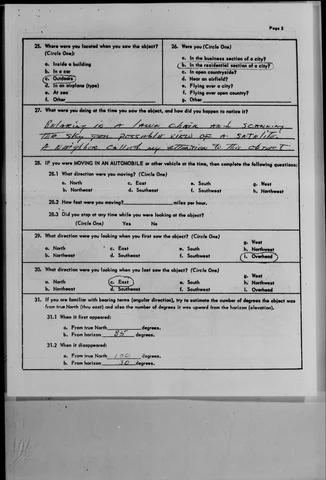 Page 3
25. Where were you located when you saw the object? (Circle One):
a. Inside a building
b. In a car
c. Outdoors
d. In an airplane (type)
e. At sea
f. Other
26. Were you (Circle One)
a. In the business section of a city?
b. In the residential section of a city?
c. In open countryside?
d. Near an airfield?
e. Flying over a city?
f. Flying over open country?
g. Other
27. What were you doing at the time you saw the object, and how did you happen to notice it?
Relaxing in a lawn chair and scanning
the sky for possible view of a satelite.
A neighbor called my attention to this object
28. IF you were MOVING IN AN AUTOMOBILE or other vehicle at the time, then complete the following questions:
28.1 What direction were you moving? (Circle One)
a. North c. East e. South g. West
b. Northeast d. Southeast f. Southwest h. Northwest
28.2 How fast were you moving? miles per hour.
28.3 Did you stop at any time while you were looking at the object?
(Circle One) Yes No
29. What direction were you looking when you first saw the object? (Circle One)
a. North c. East e. South g. West
b. Northeast d. Southeast f. Southwest h. Northwest
i. Overhead
30. What direction were you looking when you last saw the object? (Circle One)
a. North c. East e. South g. West
b. Northeast d. Southeast f. Southwest h. Northwest
i. Overhead
31. If you are familiar with bearing terms (angular direction), try to estimate the number of degrees the object was
from true North (thru east) and also the number of degrees it was upward from the horizon (elevation).
31.1 When it first appeared:
a. From true North degrees.
b. From horizon 85 degrees.
31.2 When it disappeared:
a. From true North 100 degrees.
b. From horizon 30 degrees.